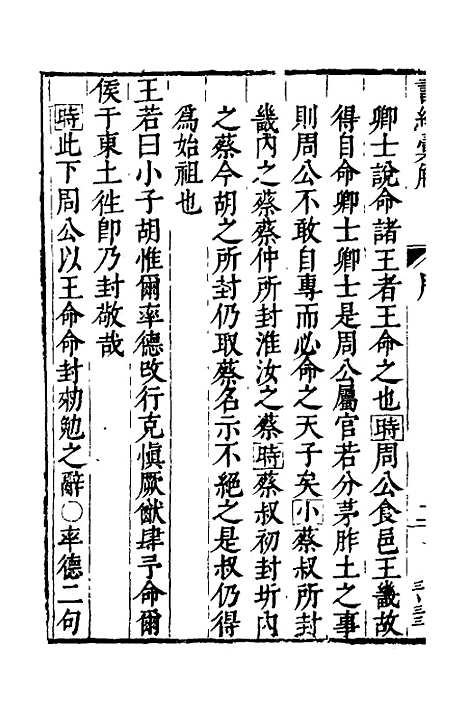 卿士說命諸王者王命之也時周公食邑王畿故
得自命卿士卿士是周公屬官若分茅胙土之事
則周公不敢自專而必命之天子矣小蔡叔所封
畿內之蔡蔡仲所封淮汝之蔡時蔡叔初封圻內
之蔡今胡之所封仍取蔡名示不絕之是叔仍得
為始祖也
王若曰小子胡惟爾率德改行克愼厥猷肆予命爾
侯于東土往卽乃封敬哉
時此下周公以王命命封勑勉之辭○率德二句